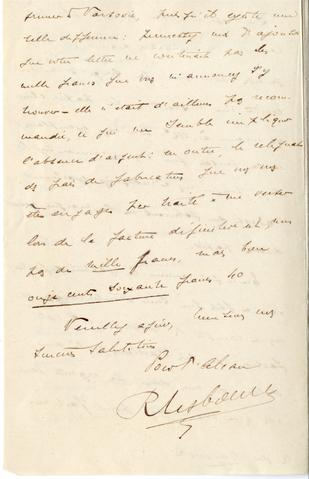 à Varsovie, puisqu'il existe une
telle différence : permettez-moi d'ajouter
que votre lettre ne contenait pas les
mille francs que vous m'annoncez y
trouver – elle n'était d'ailleurs pas recom-
mandée, ce qui me semble impliquer
l'absence d'argent : en outre, le
de frais de fabrication que vous vous
êtes engagés par traité à me verser
lors de la facture définitive est non
pas de mille francs, mais bien
onze cents soixante francs, 40
Veuillez agréer, Messieurs, mes
sincères salutations
Pour